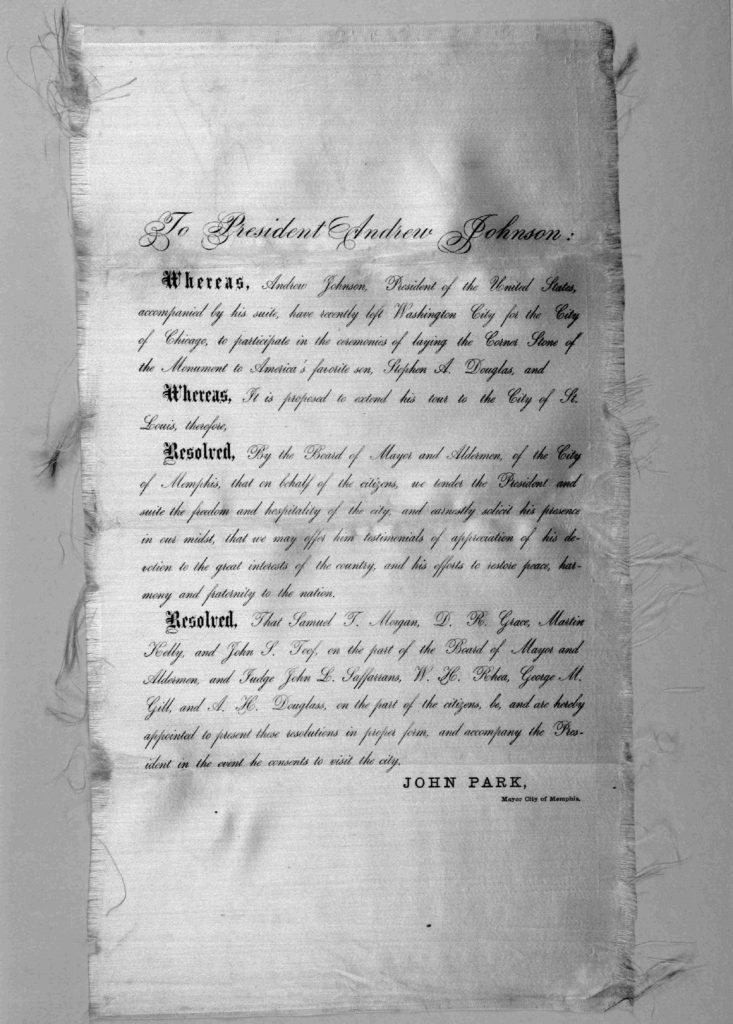 To President Andrew Johnson:
Whereas, Andrew Johnson, President of the United States,
accompanied by his suite, have recently left Washington City for the City
of Chicago, to participate in the ceremonies of laying the Corner Stone of
the Monument to America's favorite son, Stephen A. Douglas, and
Whereas, It is proposed to extend his tour to the City of St.
Louis, therefore,
Resolved, By the Board of Mayor and Aldermen, of the City
of Memphis, that on behalf of the citizens, we tender the President and
suite the freedom and hospitality of the city, and earnestly solicit his presence
in our midst, that we may offer him testimonials of appreciation of his de-
votion to the great interests of the country, and his efforts to restore peace, har-
mony and fraternity to the nation.
Resolved, That Samuel T. Morgan, D. R. Grace, Martin
Kelly, and John S. Toof, on the part of the Board of Mayor and
Aldermen, and Judge John L. Saffarrans, W. H. Rhea, George M.
Gill, and A. H. Douglass, on the part of the citizens, be, and are hereby
appointed to present these resolutions in proper form, and accompany the Pres-
ident in the event he consents to visit the city.
JOHN PARK,
Mayor City of Memphis.